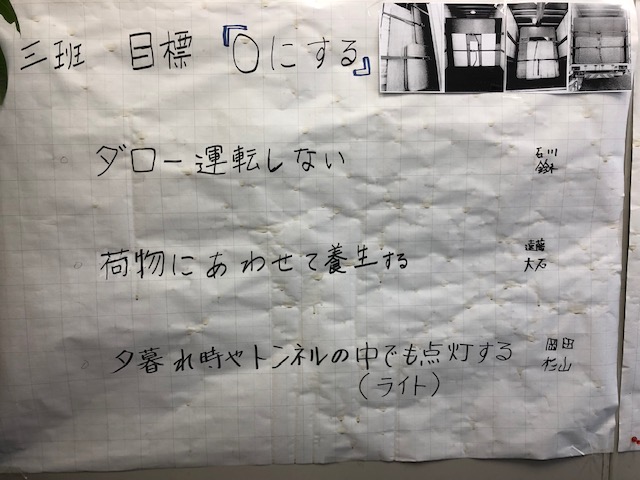 三班 目標 『0にする』
ダロー運転しない
石川
鈴木
荷物にあわせて養生する
遠藤
大石
夕暮れ時やトンネルの中でも点灯する
(ライト)
岡田
杉山